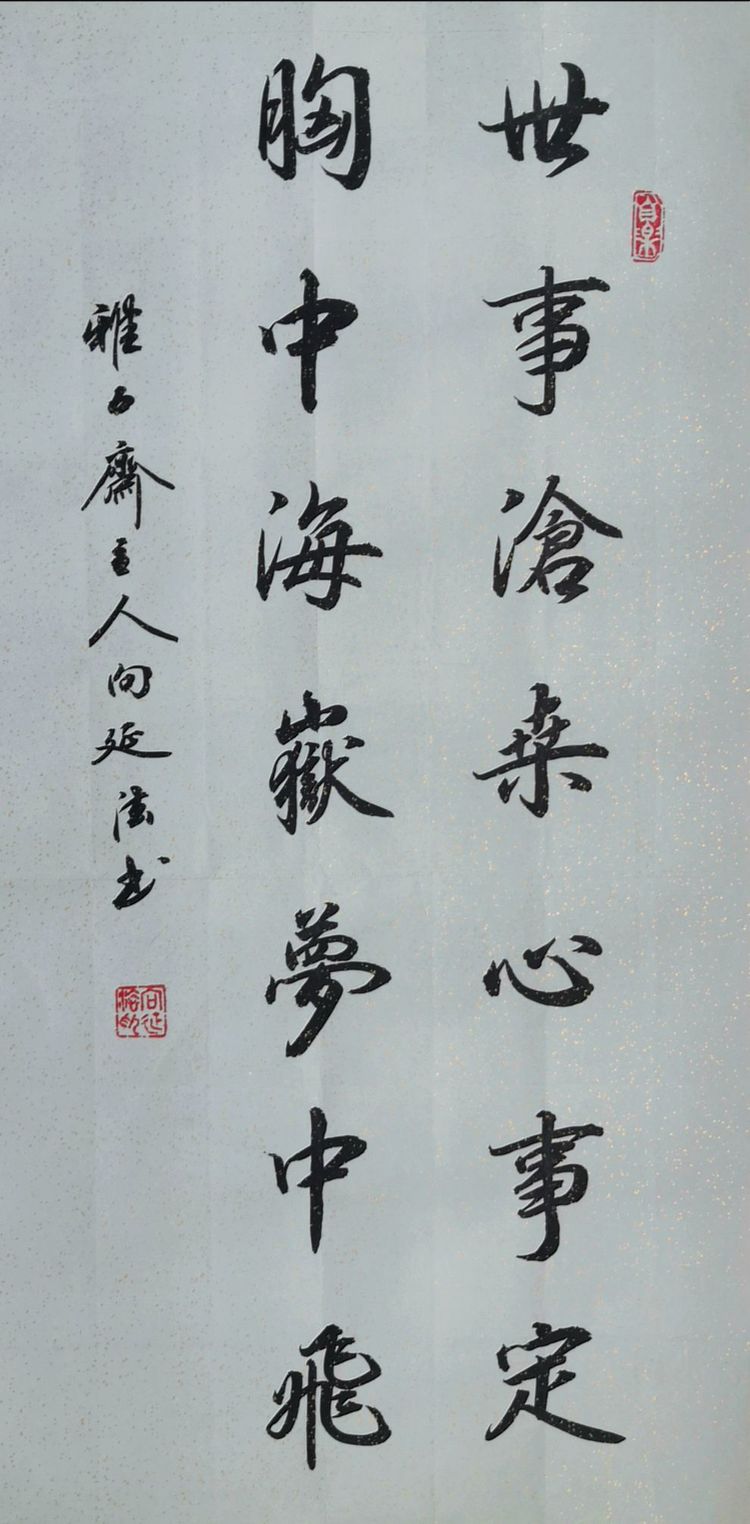 世事滄桒心事定
胸中海嶽夢中飛
雅石齋主人向延法书
向延法印